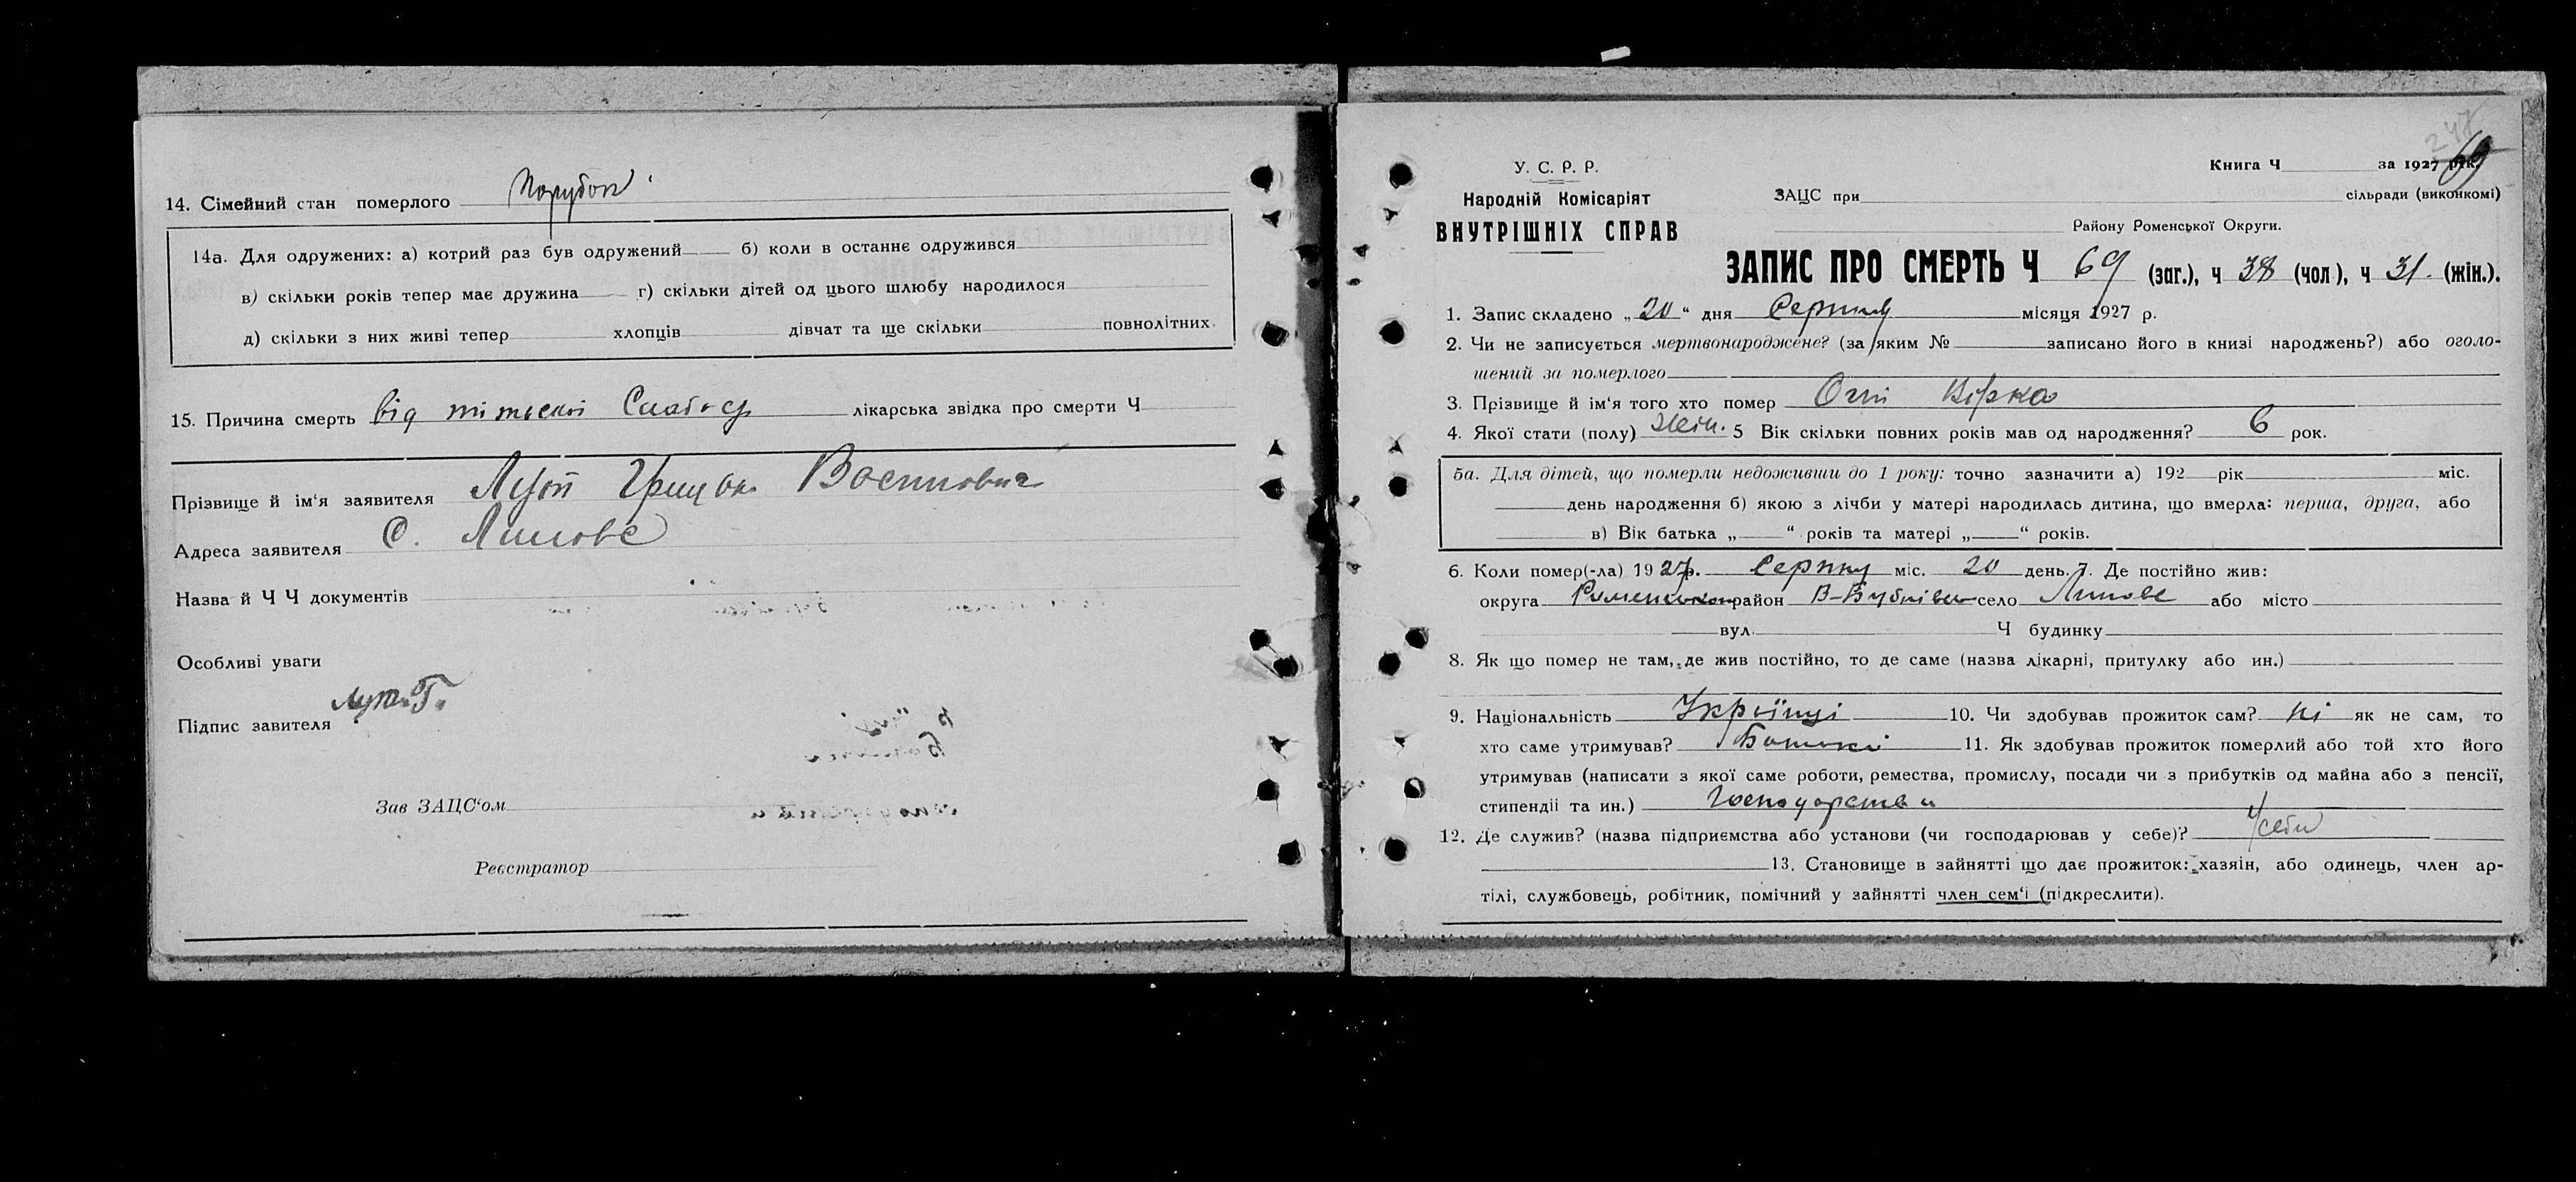 14. Сімейний стан померлого Парубок
14а. Для одружених: а) котрий раз був одружений б) коли в останнє одружився
в) скільки років тепер має дружина г) скільки дітей од цього шлюбу народилося
д) скільки з них живі тепер хлопців дівчат та ще скільки повнолітних.
15. Причина смерть від лікарська звідка про смерти Ч
Прізвище й ім'я заявителя Грицько
Адреса заявителя С. Липове
Назва й Ч Ч документів
Особливі уваги
Підпис завителя
Зав ЗАЦС'ом
Реєстратор
247
69
У. С. Р. Р.
Народній Комісаріят
ВНУТРІШНІХ СПРАВ
Книга Ч за 1927 рік.
ЗАЦС при сільради (виконкомі)
Району Роменської Округи.
ЗАПИС ПРО СМЕРТЬ Ч 69 (заг.), ч 38 (чол), ч 31. (жін.).
1. Запис складено „20“ дня Серпня місяця 1927 р.
2. Чи не записується мертвонароджене? (за яким № записано його в книзі народжень?) або оголо-
шений за померлого
3. Прізвище й ім'я того хто помер Вірка
4. Якої стати (полу) Жін. 5 Вік скільки повних років мав од народження? 6 рок.
5а. Для дітей, що померли недоживши до 1 року: точно зазначити а) 192 рік міс.
день народження б) якою з лічби у матері народилась дитина, що вмерла: перша, друга, або
в) Вік батька „ “ років та матері „ “ років.
6. Коли помер(-ла) 1927р. Серпня міс. 20 день. 7. Де постійно жив:
округа Роменська район В-Бубнівськ село Липове або місто
вул. Ч будинку
8. Як що помер не там, де жив постійно, то де саме (назва лікарні, притулку або ин.)
9. Національність Українці 10. Чи здобував прожиток сам? ні як не сам, то
хто саме утримував? Батьки 11. Як здобував прожиток померлий або той хто його
утримував (написати з якої саме роботи, ремества, промислу, посади чи з прибутків од майна або з пенсії,
стипендії та ин.) Господарства
12. Де служив? (назва підприємства або установи (чи господарював у себе)? У себе
13. Становище в зайнятті що дає прожиток: хазяін, або одинець, член ар-
тілі, службовець, робітник, помічний у зайнятті член сем'ї (підкреслити).